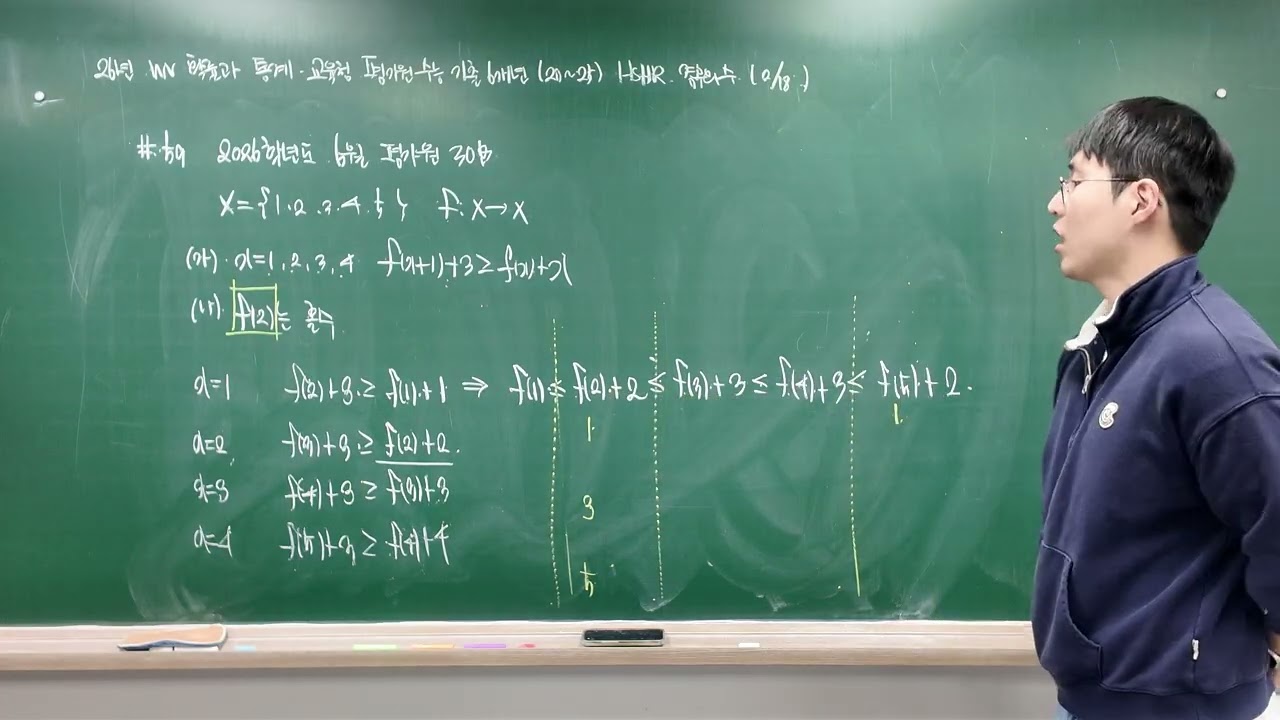 26년 확률과 통계 · 교육청 평가원 수능 기출 6개년 (20~25)
2026학년도 6월 평가원 30번
X={1.2.3.4.5} f: X→X
(가). x=1, 2, 3, 4 f(x+1)+3≥f(x)+x
(나). f(2)는 홀수
x=1 f(2)+3≥f(1)+1 ⇒ f(1)≤f(2)+2≤f(3)+3≤f(4)+3≤f(5)+2.
1. 1.
x=2 f(3)+3≥f(2)+2.
x=3 f(4)+3≥f(3)+3
3
x=4 f(5)+3≥f(4)+4
5